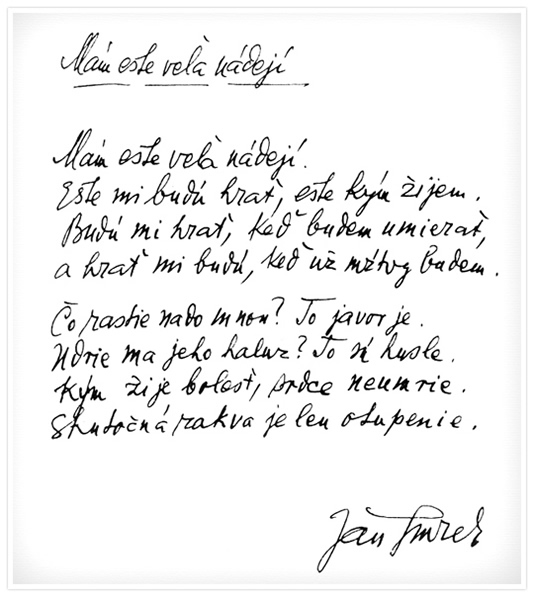 Mám ešte veľa nádejí
Mám ešte veľa nádejí.
Ešte mi budú hrať, ešte kým žijem.
Budú mi hrať, keď budem umierať,
a hrať mi budú, keď už mŕtvy budem.
Čo rastie nado mnou? To javor je.
Udrie ma jeho haluz? To sú husle.
Kým žije bolesť, srdce neumrie.
Skutočná rakva je len otupenie.
Ján Smrek